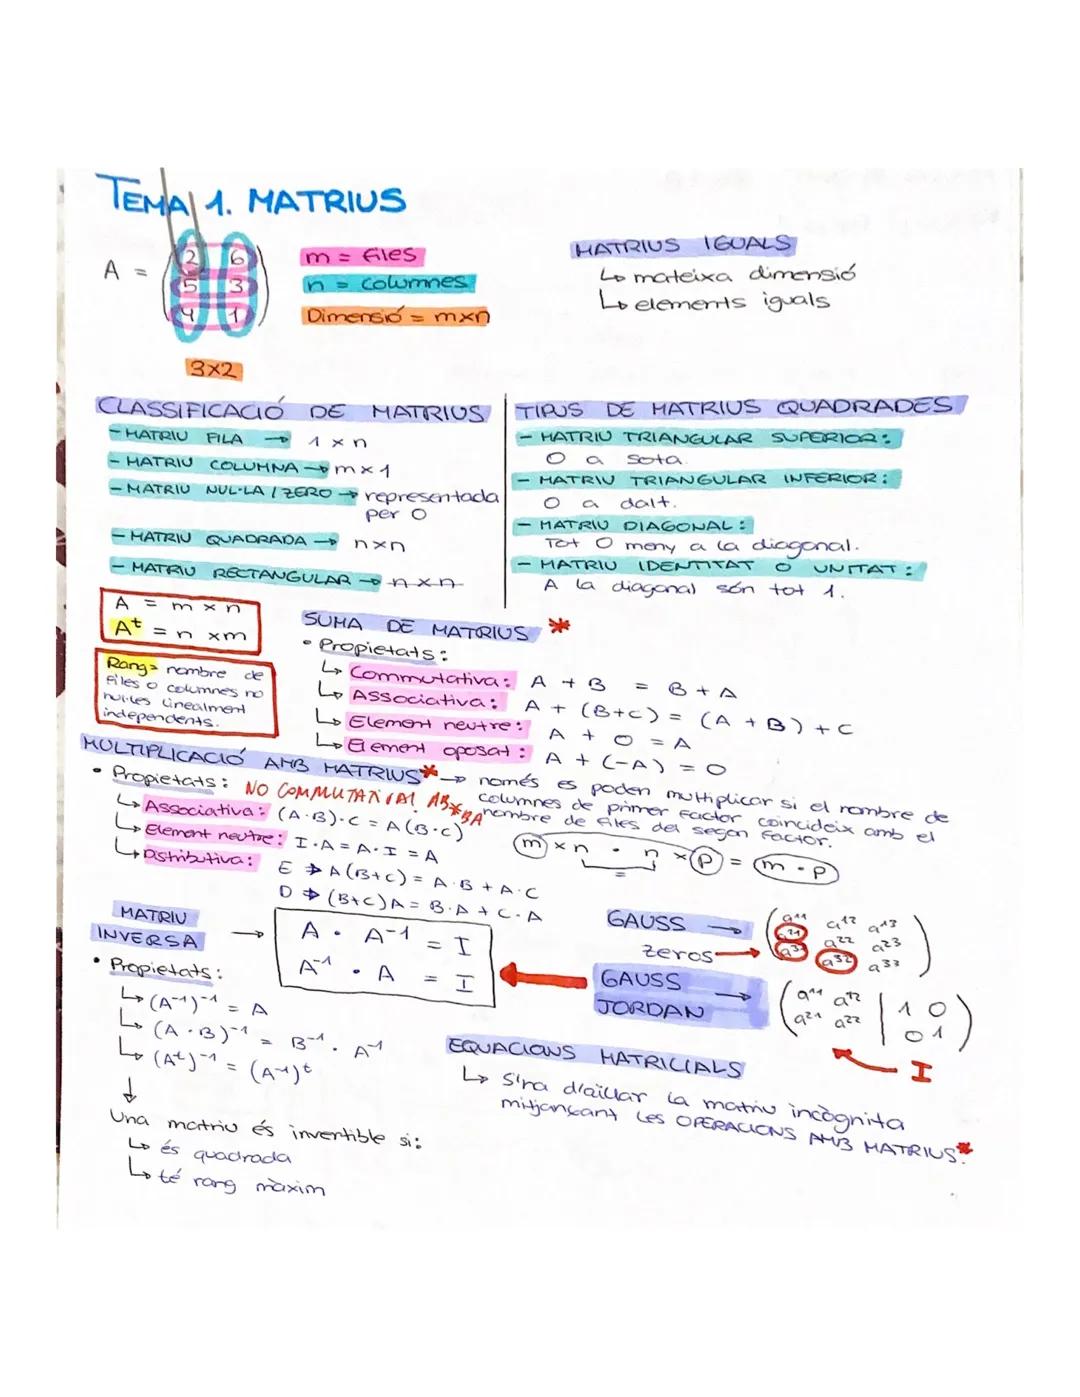 TEMA 1. MATRIUS
A = ( 2 6
5 3
4 1 )
3x2
m = files
n = columnes
Dimensió = mxn
MATRIUS IGUALS
↳ mateixa dimensió
↳ elements iguals
CLASSIFICACIÓ DE MATRIUS
- MATRIU FILA → 1 x n
- MATRIU COLUMNA → m x 1
- MATRIU NUL·LA / ZERO → representada
per O
- MATRIU QUADRADA → nxn
- MATRIU RECTANGULAR → n x n
TIPUS DE MATRIUS QUADRADES
- MATRIU TRIANGULAR SUPERIOR:
O a sota.
- MATRIU TRIANGULAR INFERIOR:
O a dalt.
- MATRIU DIAGONAL:
Tot O meny a la diagonal.
- MATRIU IDENTITAT O UNITAT:
A la diagonal són tot 1.
A = m x n
Aᵗ = n xm
Rang = nombre de
files o columnes no
nul·les linealment
independents.
SUMA DE MATRIUS *
• Propietats:
↳ Commutativa: A + B = B + A
↳ Associativa: A + (B+C) = (A + B) + C
↳ Element neutre: A + O = A
↳ Element oposat: A + (-A) = O
MULTIPLICACIÓ AMB MATRIUS* → només es poden multiplicar si el nombre de
columnes de primer factor coincideix amb el
nombre de files del segon factor.
m x n · n x p = m · p
• Propietats: NO COMMUTATIVA! AB ≠ BA
↳ Associativa: (A·B)·C = A(B·C)
↳ Element neutre: I·A = A·I = A
↳ Distributiva:
E → A(B+C) = A·B + A·C
D → (B+C)A = B·A + C·A
MATRIU
INVERSA →
A · A⁻¹ = I
A⁻¹ · A = I
• Propietats:
↳ (A⁻¹)⁻¹ = A
↳ (A·B)⁻¹ = B⁻¹ · A⁻¹
↳ (Aᵗ)⁻¹ = (A⁻¹)ᵗ
↓
Una matriu és invertible si:
↳ és quadrada
↳ té rang màxim
GAUSS →
zeros →
( a¹¹ a¹² a¹³
a²¹ a²² a²³
a³¹ a³² a³³ )
GAUSS
JORDAN →
( a¹¹ a¹² | 1 0
a²¹ a²² | 0 1 )
← I
EQUACIONS MATRICIALS
↳ S'ha d'aïllar la matriu incògnita
mitjançant les OPERACIONS AMB MATRIUS.*